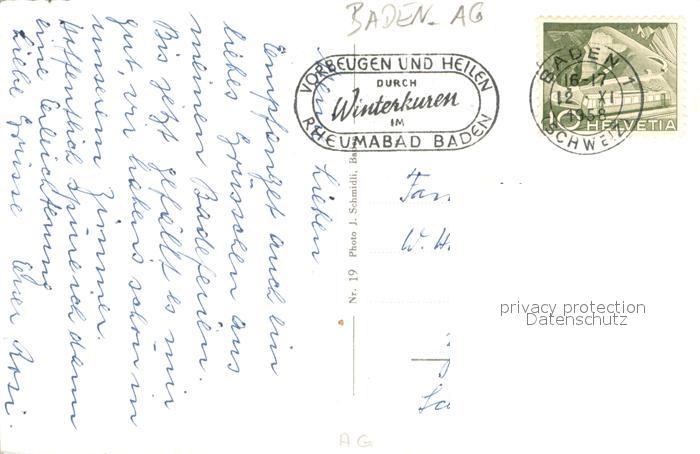 BADEN-AG
VORBEUGEN UND HEILEN
DURCH
Winterkuren
IM
RHEUMABAD BADEN
BADEN 1
16-17
12 XI
1958
(SCHWEIZ)
10 HELVETIA
Lieben.
Empfanget auch ein
liebes Grüsschen aus
meinen Badeferien.
Bis jetzt gefällt es mir
gut, wir haben schon in
unserem Zimmer.
Hoffentlich spüre ich dann
eine Erleichterung
Liebe Grüsse Euer Rosi.
Nr. 19 Photo J. Schmidli, Ba
Fam
W. H
privacy protection
Datenschutz
AG